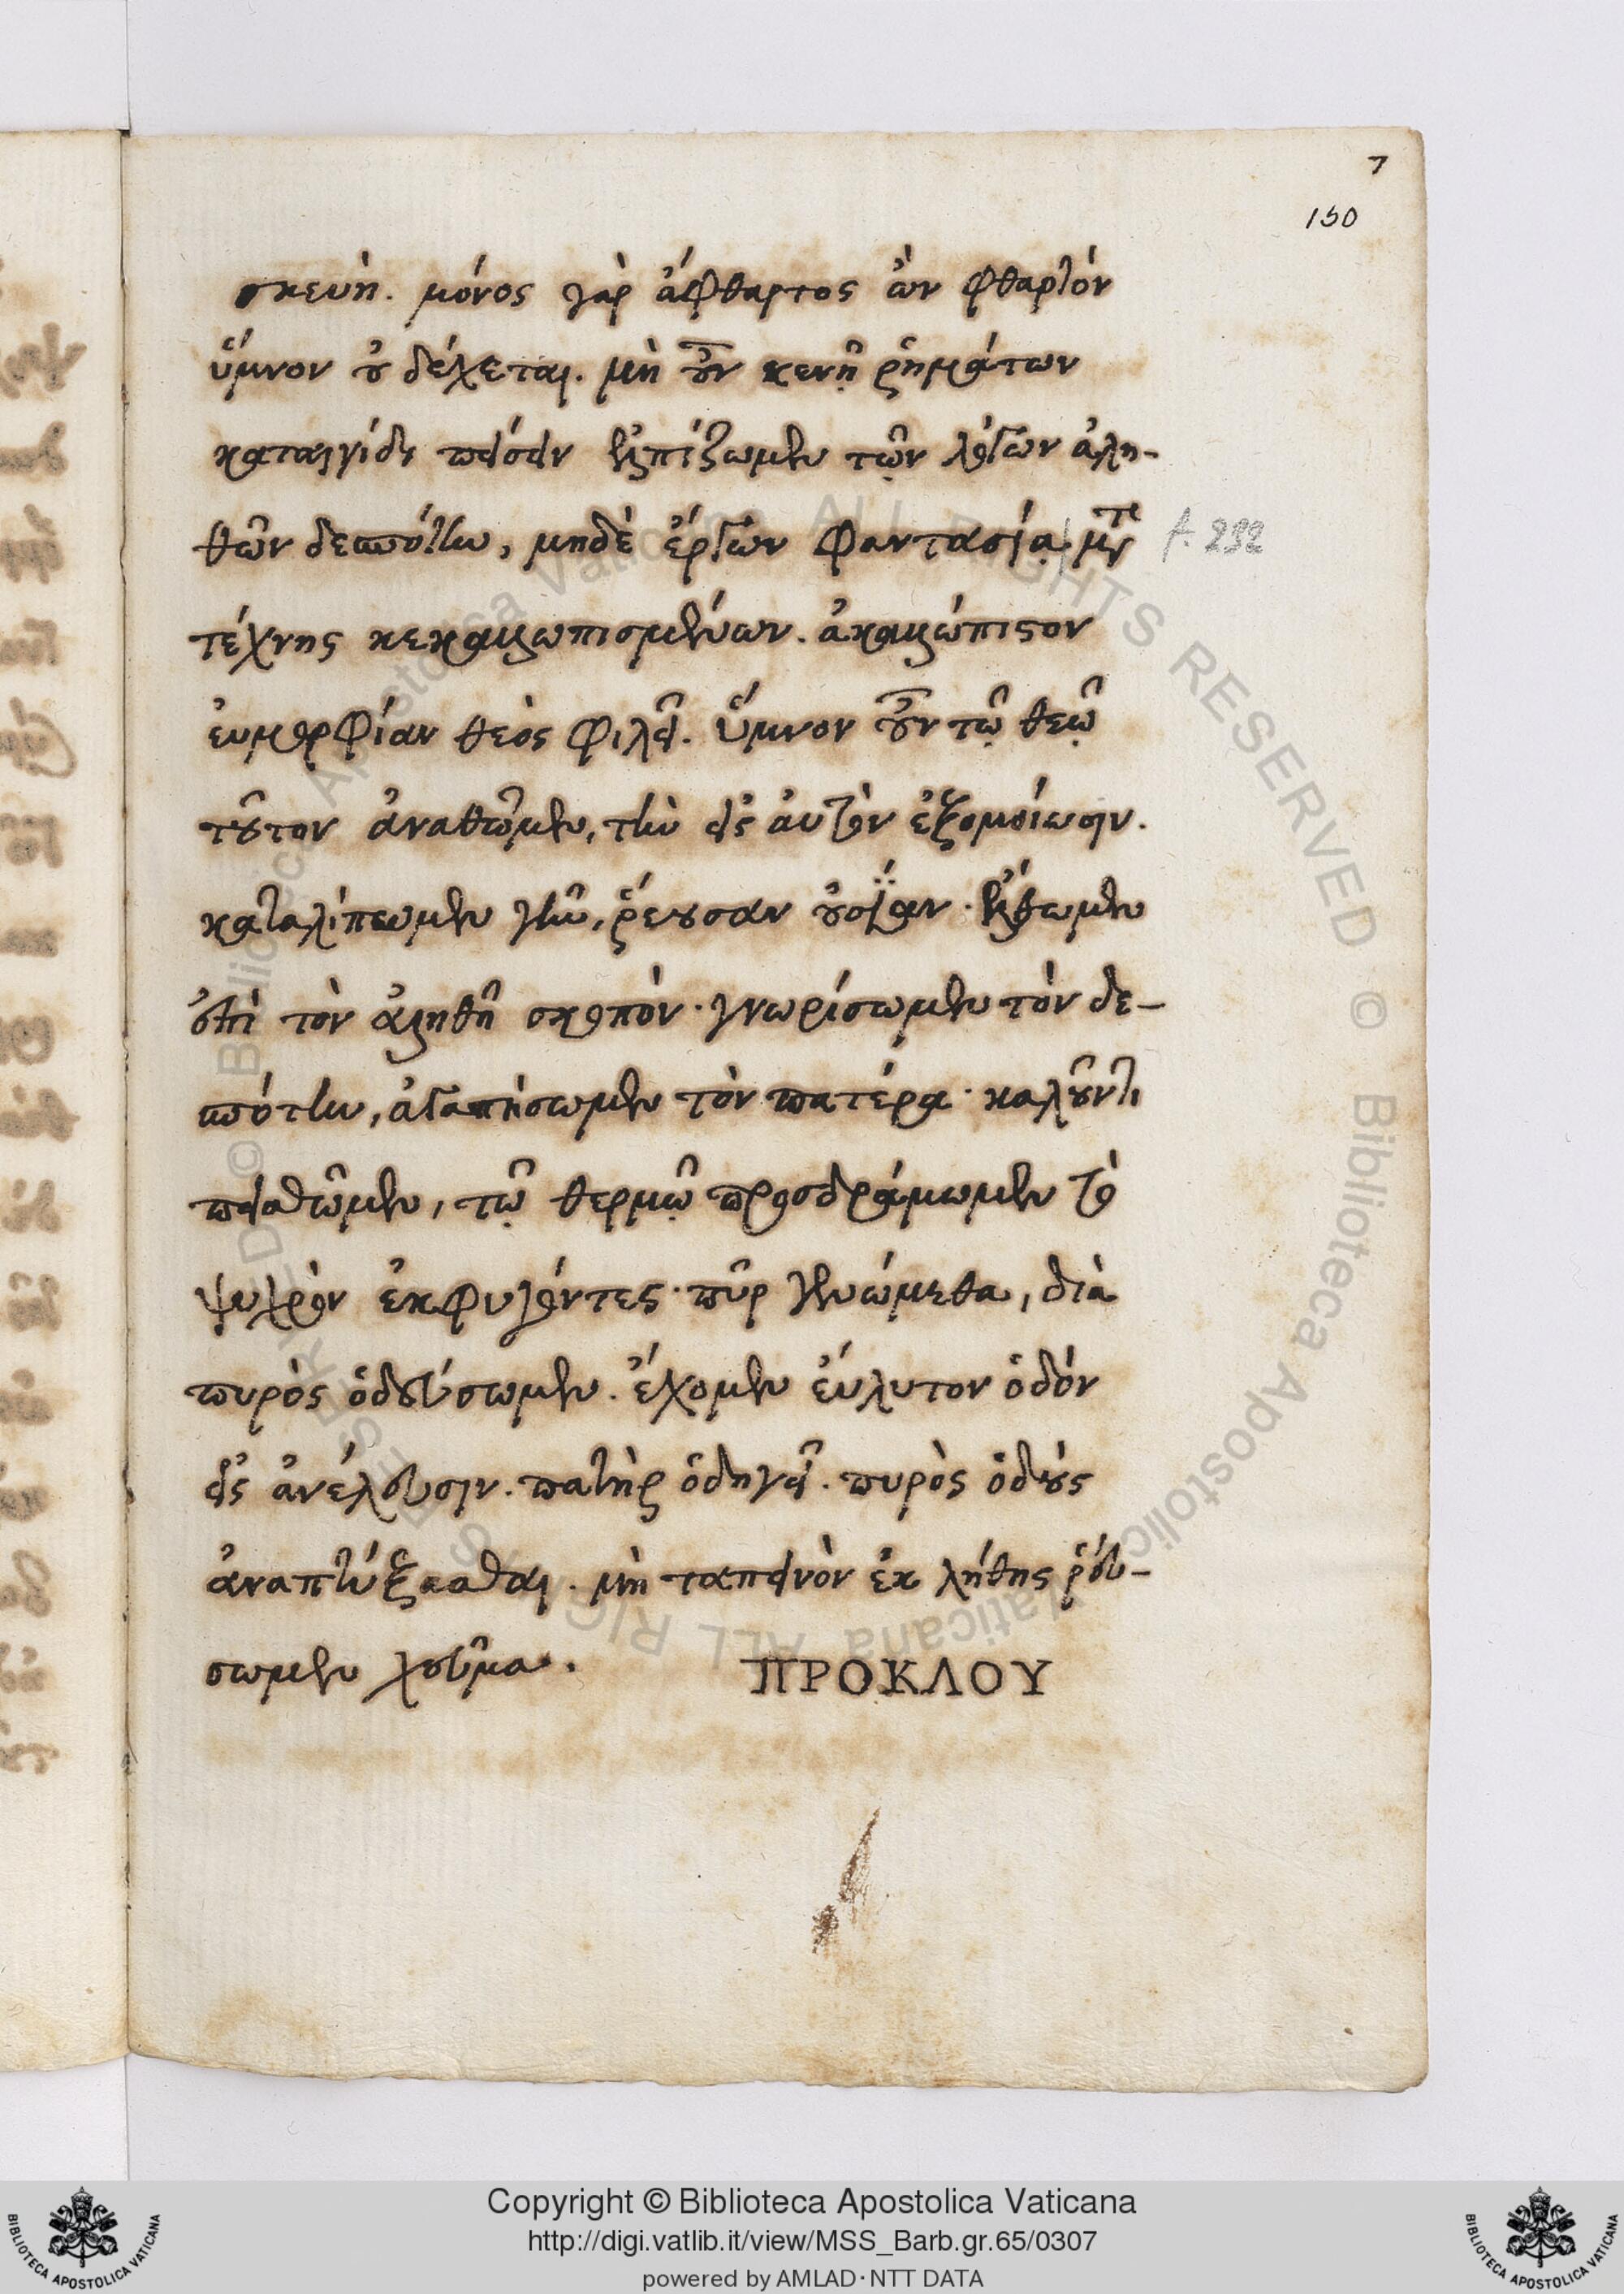 7
150
σκευή. μόνος γὰρ ἄφθαρτος ὢν φθαρτὸν
ὕμνον οὐ δέχεται. μὴ οὖν κενῇ ῥημάτων
καταιγίδι πείσειν ἐλπίζωμεν τῶν λόγων ἀλη-
θῶν δεσπότην, μηδὲ ἔργων φαντασίᾳ μετὰ f. 232
τέχνης κεκαλλωπισμένων. ἀκαλλώπιστον
εὐμορφίαν θεὸς φιλεῖ. ὕμνον οὖν τῷ θεῷ
τοῦτον ἀναθῶμεν, τὴν εἰς αὐτὸν ἐξομοίωσιν.
καταλίπωμεν γῆν, ῥέουσαν οὐσίαν. ἔλθωμεν
ἐπὶ τὸν ἀληθῆ σκοπόν. γνωρίσωμεν τὸν δε-
σπότην, ἀγαπήσωμεν τὸν πατέρα. καλοῦντι
πεισθῶμεν, τῷ θερμῷ προσδράμωμεν τὸ
ψυχρὸν ἐκφυγόντες. πῦρ γενώμεθα, διὰ
πυρὸς ὁδεύσωμεν. ἔχομεν εὔλυτον ὁδὸν
εἰς ἀνέλευσιν. πατὴρ ὁδηγεῖ. πυρὸς ὁδοὺς
ἀναπτύξασθαι. μὴ ταπεινὸν ἐκ λήθης ῥεύ-
σωμεν χεῦμα. ΠΡΟΚΛΟΥ
Copyright © Biblioteca Apostolica Vaticana
http://digi.vatlib.it/view/MSS_Barb.gr.65/0307
powered by AMLAD·NTT DATA